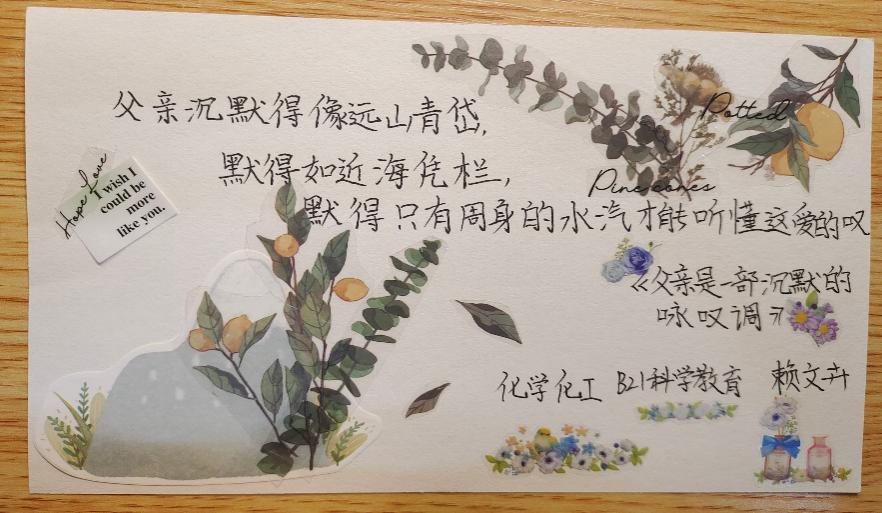 父亲沉默得像远山青岱,
默得如近海凭栏,
默得只有周身的水汽才能听懂这爱的叹
《父亲是一部沉默的
咏叹调》
化学化工 B21科学教育 赖文卉
Hope Love
I wish I
could be
more
like you.
Potted
Pinecones